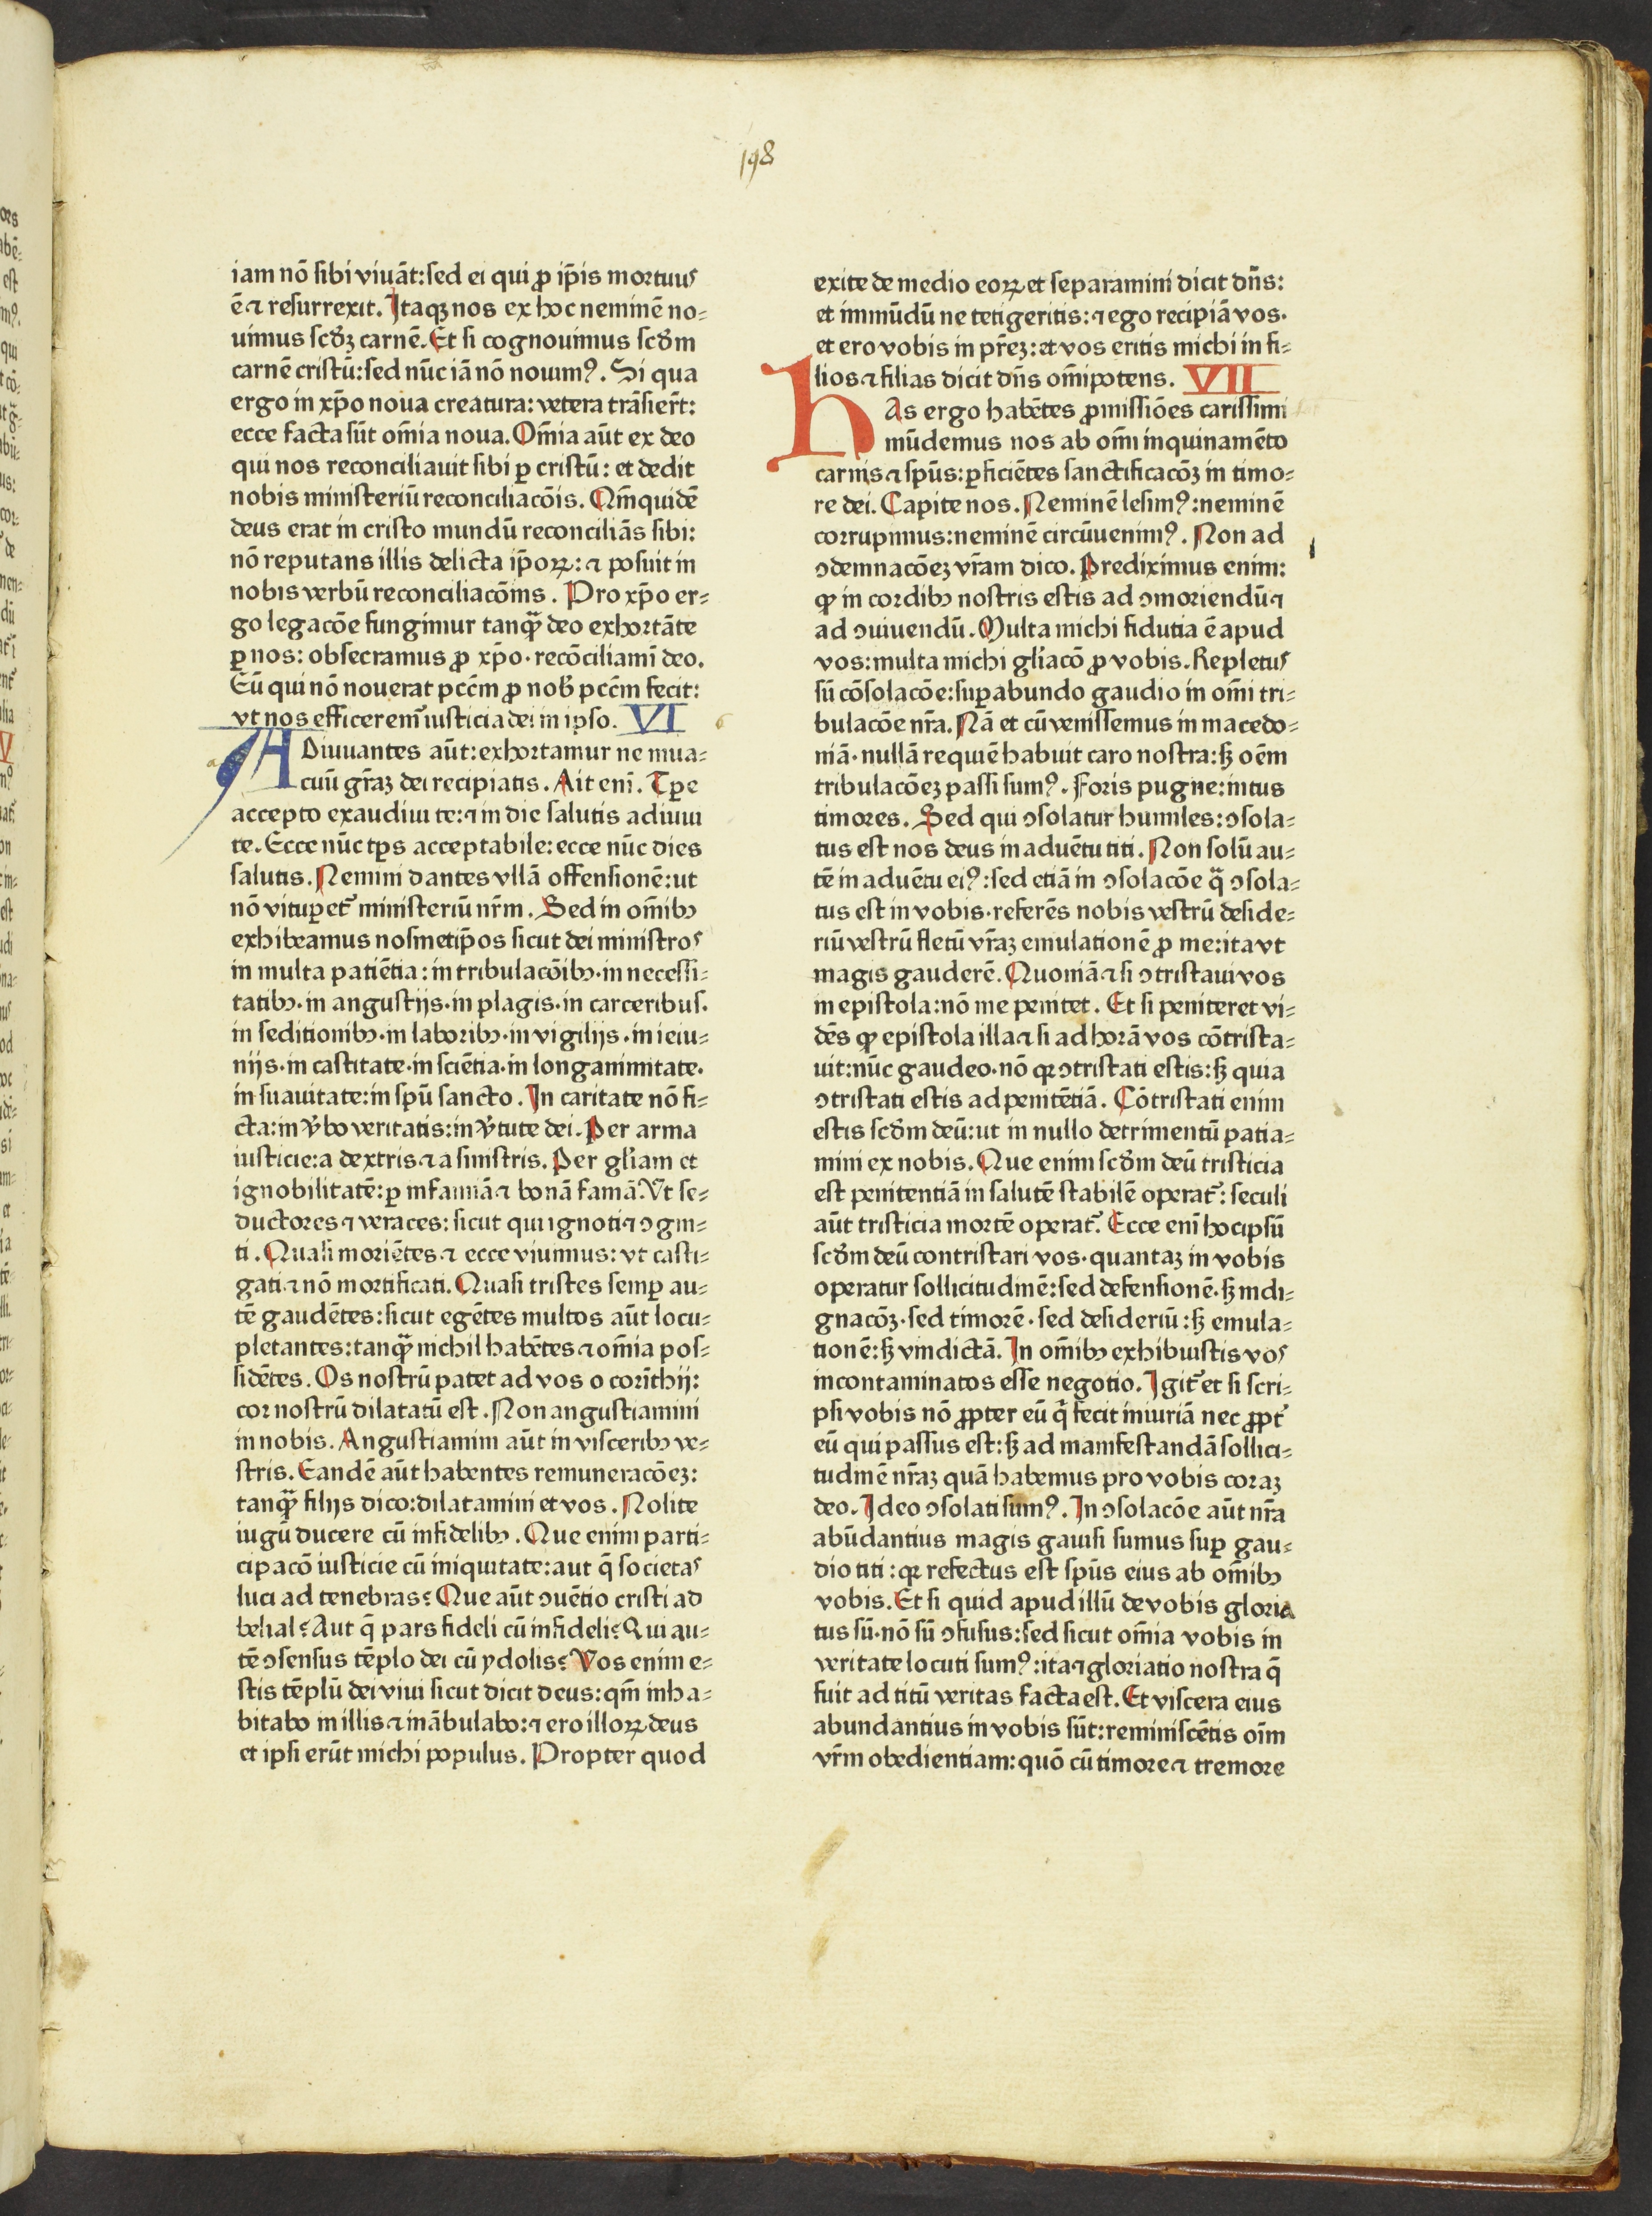 198
iam nō sibi viuāt: sed ei qui ꝓ ip̄is mortuus
ē ⁊ resurrexit. Itaqꝫ nos ex hoc neminē no⸗
uimus scd̄ꝫ carnē. Et si cognouimus scd̄m
carnē cristū: sed nūc iā nō nouimꝰ. Si qua
ergo in xp̄o noua creatura: vetera trāsier̄t:
ecce facta sūt om̄ia noua. Om̄ia aūt ex deo
qui nos reconciliauit sibi ꝑ cristū: et dedit
nobis ministeriū reconciliacōis. Qm̄quidē
deus erat in cristo mundū reconciliās sibi:
nō reputans illis delicta ip̄oꝝ: ⁊ posuit in
nobis verbū reconciliacōnis. Pro xp̄o er⸗
go legacōe fungimur tanqᷓꝫ deo exhortāte
ꝑ nos: obsecramus ꝓ xp̄o· recōciliamī deo.
Eū qui nō nouerat pccm̄ ꝓ nob̄ pccm̄ fecit:
vt nos efficerem᷒ iusticia dei in ipso. VI
ADiuuantes aūt: exhortamur ne inua⸗
cuū gr̄aꝫ dei recipiatis. Ait enī. Tꝑe
accepto exaudiui te: ⁊ in die salutis adiuui
te. Ecce nūc tꝑs acceptabile: ecce nūc dies
salutis. Nemini dantes vllā offensionē: ut
nō vituꝑet᷒ ministeriū nr̄m. Sed in om̄ibꝫ
exhibeamus nosmetip̄os sicut dei ministros
in multa patiētia: in tribulacōibꝫ· in necessi⸗
tatibꝫ· in angustijs· in plagis· in carceribus.
in seditionibꝫ· in laboribꝫ· in vigilijs· in ieiu⸗
nijs· in castitate· in sciētia· in longanimitate·
in suauitate: in spū sancto. In caritate nō fi⸗
cta: in v̄bo veritatis: in v̄tute dei. Per arma
iusticie: a dextris ⁊ a sinistris. Per gl̄iam et
ignobilitatē: ꝑ infamiā ⁊ bonā famā. Vt se⸗
ductores ⁊ veraces: sicut qui ignoti ⁊ ꝯgni⸗
ti. Quasi moriētes ⁊ ecce viuimus: vt casti⸗
gati ⁊ nō mortificati. Quasi tristes semꝑ au⸗
tē gaudētes: sicut egētes multos aūt locu⸗
pletantes: tanqᷓꝫ nichil habētes ⁊ om̄ia pos⸗
sidētes. Os nostrū patet ad vos o corīthij:
cor nostrū dilatatū est. Non angustiamini
in nobis. Angustiamini aūt in visceribꝫ ve⸗
stris. Eandē aūt habentes remuneracōeꝫ:
tanqᷓꝫ filijs dico: dilatamini et vos. Nolite
iugū ducere cū infidelibꝫ. Que enim parti⸗
cipacō iusticie cū iniquitate: aut q̄ societas
luci ad tenebras? Que aūt ꝯuētio cristi ad
belial? Aut q̄ pars fideli cū infideli? Qui au⸗
tē ꝯsensus tēplo dei cū ydolis? Vos enim e⸗
stis tēplū dei viui sicut dicit deus: qm̄ inha⸗
bitabo in illis ⁊ inābulabo: ⁊ ero illoꝝ deus
et ipsi erūt michi populus. Propter quod
exite de medio eoꝝ et separamini dicit dn̄s:
et inmūdū ne tetigeritis: ⁊ ego recipiā vos·
et ero vobis in pr̄eꝫ: et vos eritis michi in fi⸗
lios ⁊ filias dicit dn̄s om̄ipotens. VII
HAs ergo habētes ꝓmissiōes carissimi
mūdemus nos ab om̄i inquinamēto
carnis ⁊ spūs: ꝑficiētes sanctificacōꝫ in timo⸗
re dei. Capite nos. Neminē lesimꝰ: neminē
corrupimus: neminē circūuenimꝰ. Non ad
ꝯdemnacōeꝫ vr̄am dico. Prediximus enim:
ꝙ in cordibꝫ nostris estis ad ꝯmoriendū ⁊
ad ꝯuiuendū. Multa michi fidutia ē apud
vos: multa michi gl̄iacō ꝓ vobis. Repletus
sū cōsolacōe: suꝑabundo gaudio in om̄i tri⸗
bulacōe nr̄a. Nā et cū venissemus in macedo⸗
niā· nullā requiē habuit caro nostra: sꝫ oēm
tribulacōeꝫ passi sumꝰ. Foris pugne: intus
timores. Sed qui ꝯsolatur humiles: ꝯsola⸗
tus est nos deus in aduētu titi. Non solū au⸗
tē in aduētu eiꝰ: sed etiā in ꝯsolacōe qᷓ ꝯsola⸗
tus est in vobis· referēs nobis vestrū deside⸗
riū vestrū fletū vr̄aꝫ emulationē ꝓ me: ita vt
magis gauderē. Quoniā ⁊ si ꝯtristaui vos
in epistola: nō me penitet. Et si peniteret vi⸗
dēs ꝙ epistola illa ⁊ si ad horā vos cōtrista⸗
uit: nūc gaudeo· nō qꝛ ꝯtristati estis: sꝫ quia
ꝯtristati estis ad penitētiā. Cōtristati enim
estis scd̄m deū: ut in nullo detrimentū patia⸗
mini ex nobis. Que enim scd̄m deū tristicia
est penitentiā in salutē stabilē operat᷒: seculi
aūt tristicia mortē operat᷒. Ecce enī hoc ipsū
scd̄m deū contristari vos· quantaꝫ in vobis
operatur sollicitudinē: sed defensionē· sꝫ indi⸗
gnacōꝫ· sed timorē· sed desideriū: sꝫ emula⸗
tionē: sꝫ vindictā. In om̄ibꝫ exhibuistis vos
incontaminatos esse negotio. Igit᷒ et si scri⸗
psi vobis nō ꝓpter eū q̇ fecit iniuriā nec ꝓpt᷒
eū qui passus est: sꝫ ad manifestandā sollici⸗
tudinē nr̄aꝫ quā habemus pro vobis coraꝫ
deo. Ideo ꝯsolati sumꝰ. In ꝯsolacōe aūt nr̄a
abūdantius magis gauisi sumus suꝑ gau⸗
dio titi: qꝛ refectus est spūs eius ab om̄ibꝫ
vobis. Et si quid apud illū de vobis gloria
tus sū· nō sū ꝯfusus: sed sicut om̄ia vobis in
veritate locuti sumꝰ: ita ⁊ gloriatio nostra q̄
fuit ad titū veritas facta est. Et viscera eius
abundantius in vobis sūt: reminiscētis oīm
vr̄m obedientiam: quō cū timore ⁊ tremore